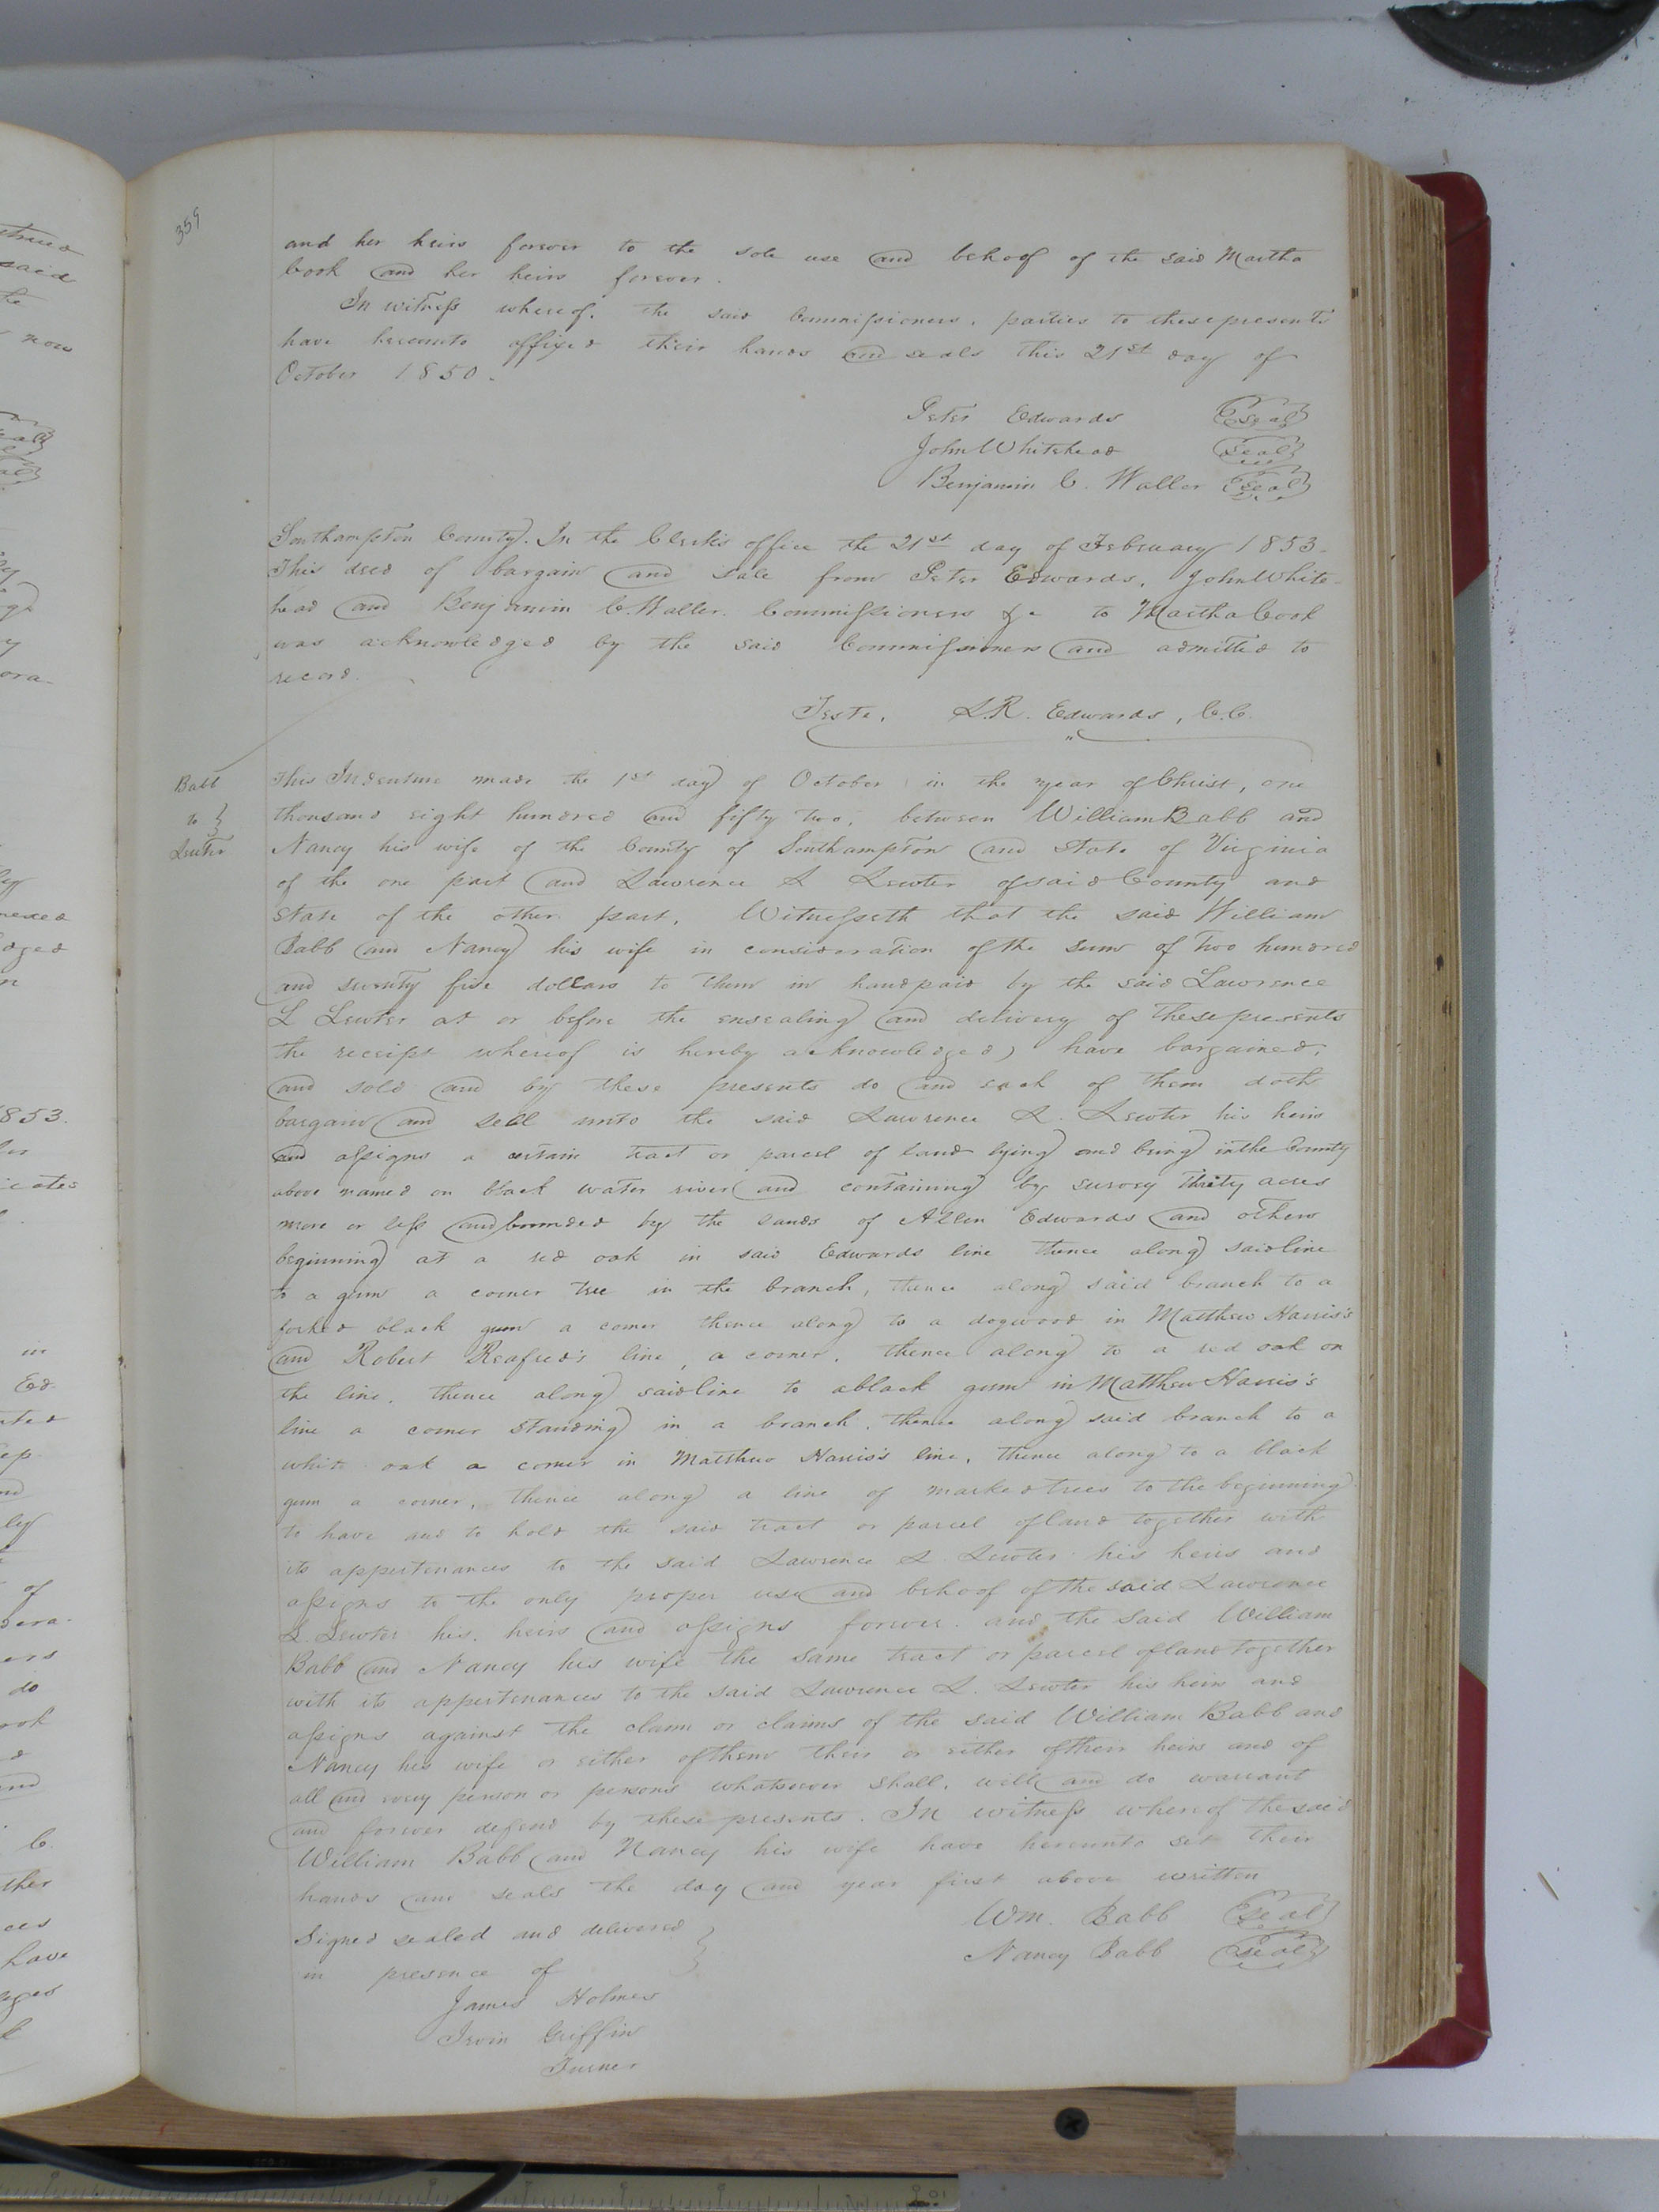 359
and her heirs forever to the sole use and behoof of the said Martha
Cook and her heirs forever.
In witness whereof, the said Commissioners, parties to these presents
have hereunto affixed their hands and seals this 21st day of
October 1850.
Peter Edwards Seal
John Whitehead Seal
Benjamin C. Waller Seal
Southampton County. In the Clerk's office the 21st day of February 1853.
This deed of bargain and sale from Peter Edwards, John White-
head and Benjamin C. Waller. Commissioners &c to Martha Cook
was acknowledged by the said Commissioners and admitted to
record.
Teste, L.R. Edwards, C.C.
Babb
to }
Lewter
This Indenture made the 1st day of October in the year of Christ, one
thousand eight hundred and fifty two, between William Babb and
Nancy his wife of the County of Southampton and State of Virginia
of the one part and Lawrence L Lewter of said County and
State of the other part, Witnesseth that the said William
Babb and Nancy his wife in consideration of the sum of two hundred
and seventy five dollars to them in hand paid by the said Lawrence
L Lewter at or before the ensealing and delivery of these presents
the receipt whereof is hereby acknowledged) have bargained,
and sold and by these presents do and each of them doth
bargain and sell unto the said Lawrence L. Lewter his heirs
and assigns a certain tract or parcel of land lying and being in the County
above named on black water river and containing by survey thirty acres
more or less and bounded by the lands of Allen Edwards and others
beginning at a red oak in said Edwards line thence along said line
to a gum a corner tree in the branch, thence along said branch to a
forked black gum a corner thence along to a dogwood in Matthew Harris's
and Robert Reafred's line, a corner, thence along to a red oak on
the line, thence along said line to a black gum in Matthew Harris's
line a corner standing in a branch, thence along said branch to a
white oak a corner in Matthew Harris's line, thence along to a black
gum a corner, thence along a line of marked trees to the beginning
to have and to hold the said tract or parcel of land together with
its appertenances to the said Lawrence L. Lewter his heirs and
assigns to the only proper use and behoof of the said Lawrence
L. Lewter his heirs and assigns forever. and the said William
Babb and Nancy his wife the same tract or parcel of land together
with its appertenances to the said Lawrence L. Lewter his heirs and
assigns against the claim or claims of the said William Babb and
Nancy his wife or either of them their or either of their heirs and of
all and every person or persons whatsoever shall, will and do warrant
and forever defend by these presents. In witness whereof the said
William Babb and Nancy his wife have hereunto set their
hands and seals the day and year first above written
Signed sealed and delivered } Wm. Babb Seal
in presence of Nancy Babb Seal
James Holmes
Irvin Griffin
Turner